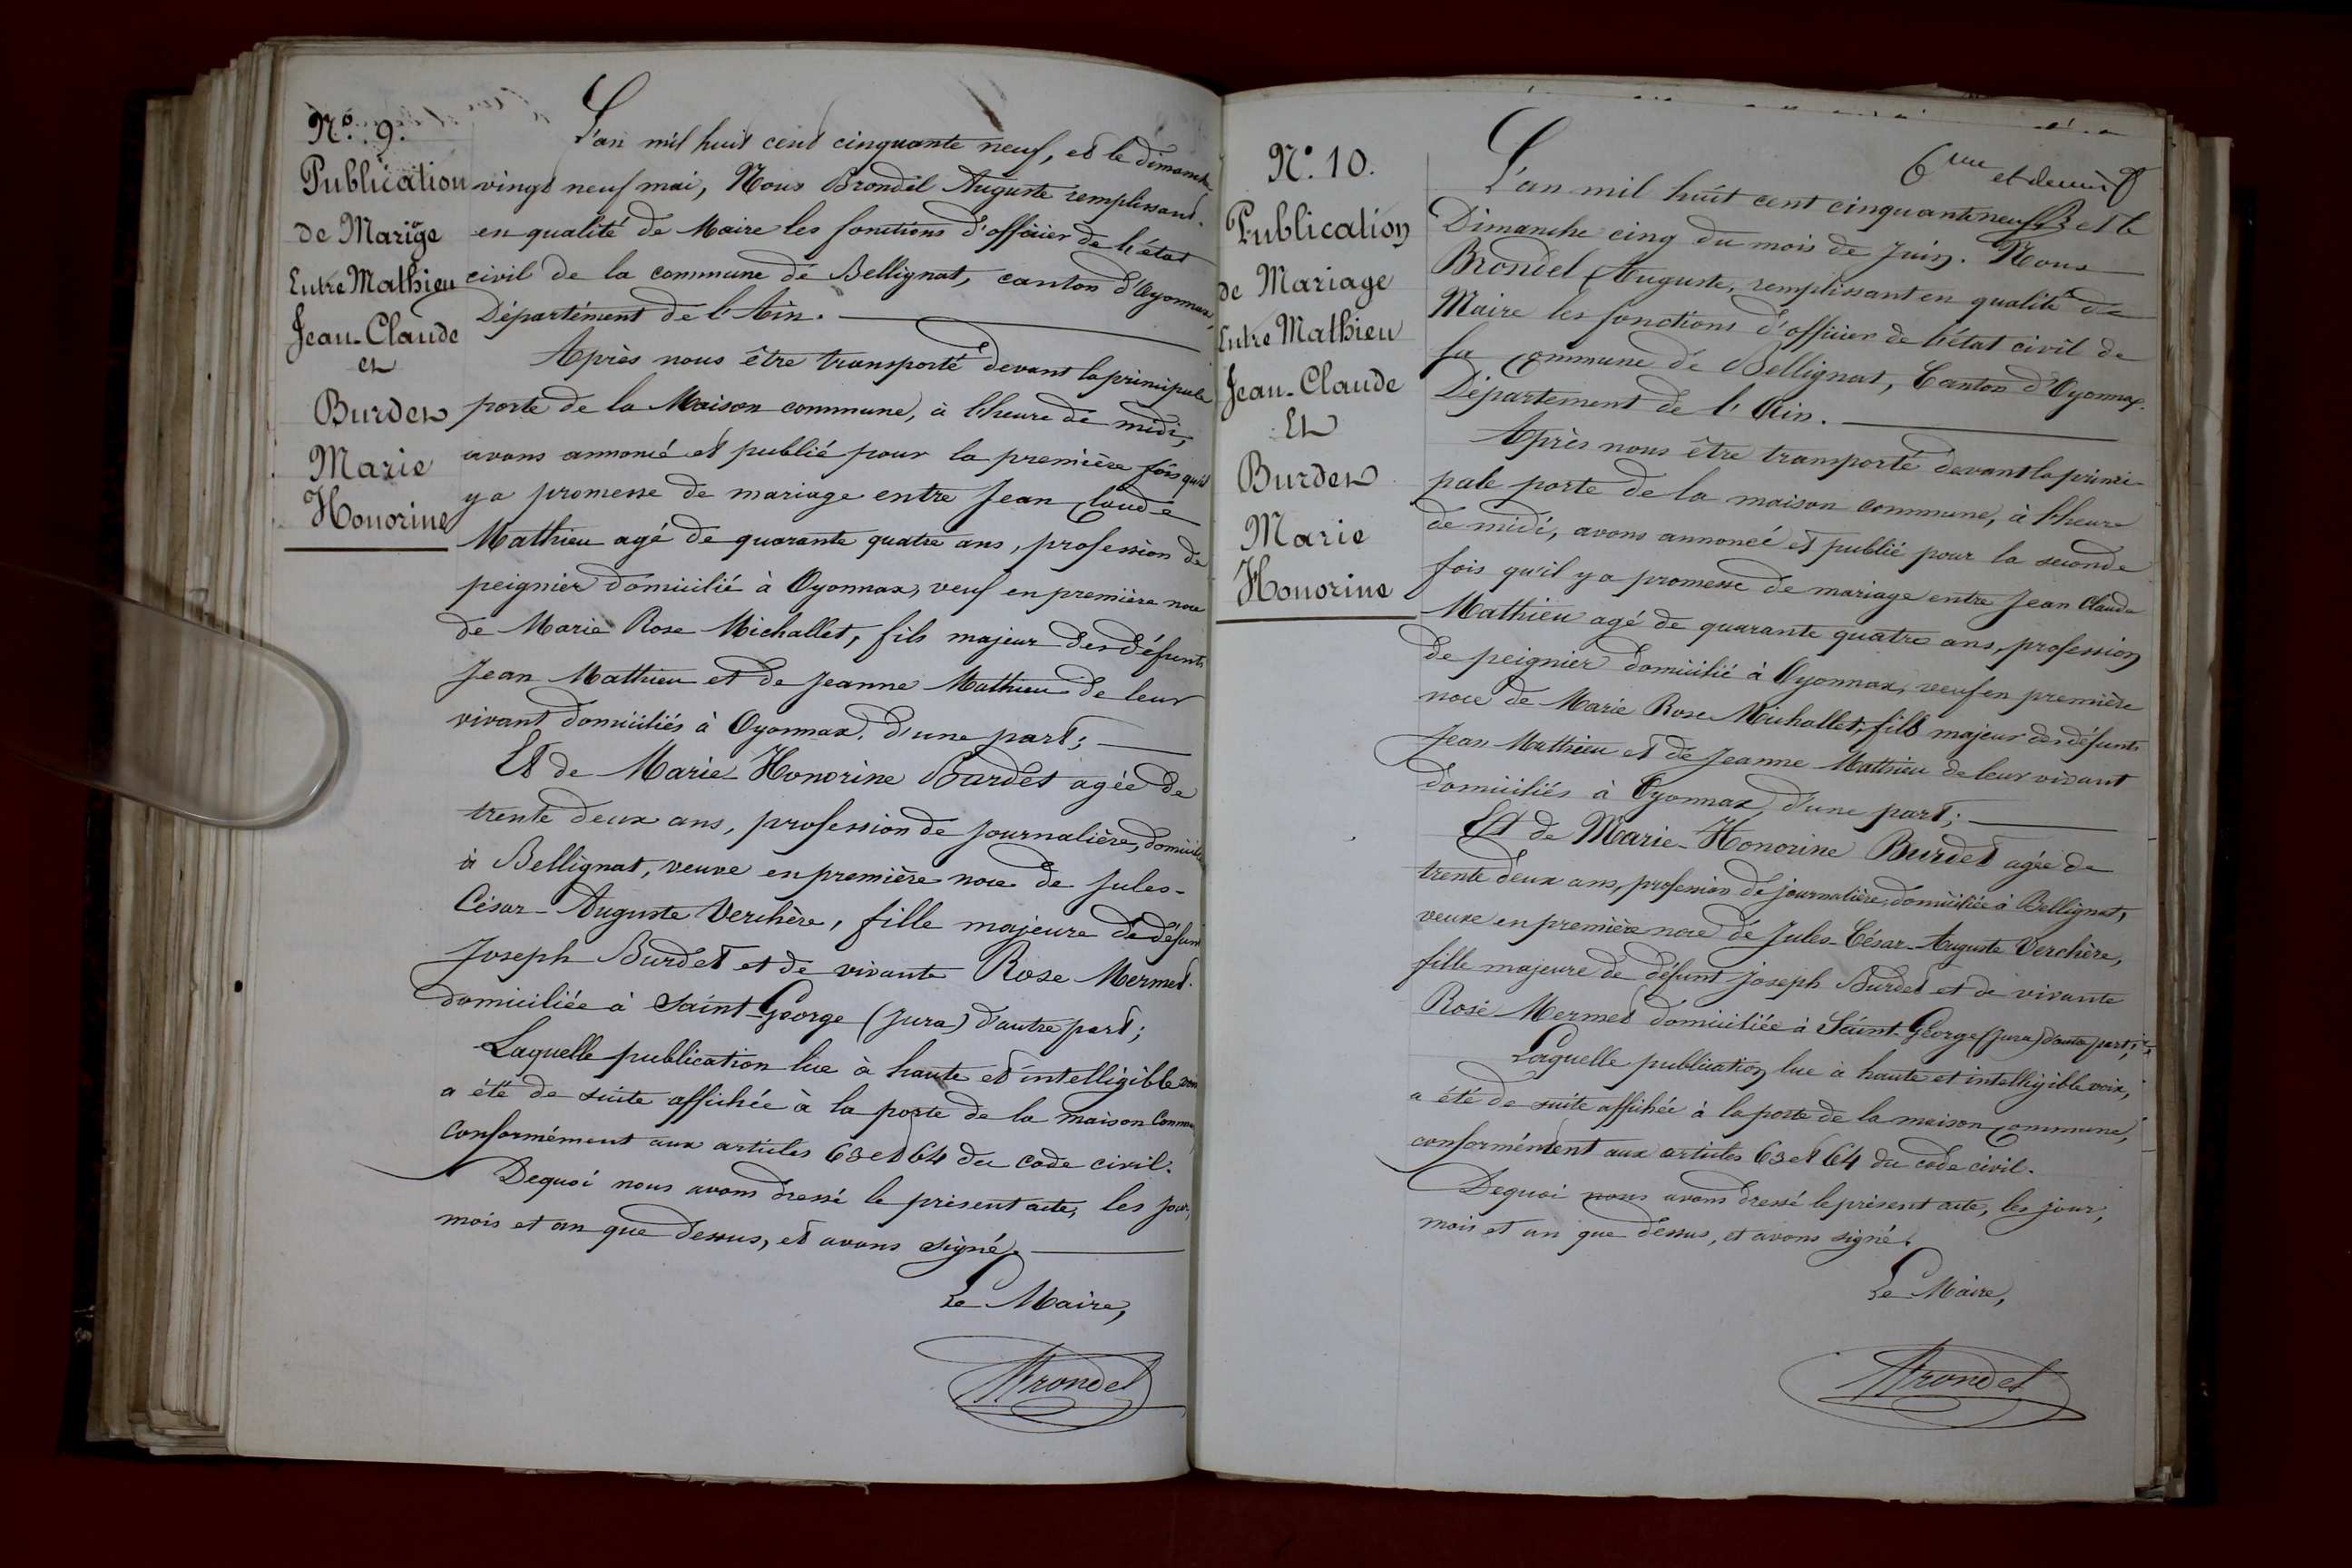 N.º 9.
Publication
de Mariage
Entre Mathieu
Jean-Claude
et
Burdet
Marie
Honorine
L'an mil huit cent cinquante neuf, et le dimanche
vingt neuf mai, Nous Brondel Auguste remplissant
en qualité de Maire les fonctions d'officier de l'état
civil de la commune de Bellignat, canton d'Oyonnax,
Département de l'Ain.
Après nous être transporté devant la principale
porte de la Maison commune, à l'heure de midi,
avons annoncé et publié pour la première fois qu'il
y a promesse de mariage entre Jean Claude
Mathieu agé de quarante quatre ans, profession de
peignier domicilié à Oyonnax, veuf en première noce
de Marie Rose Michallet, fils majeur des défunts
Jean Mathieu et de Jeanne Mathieu de leur
vivant domiciliés à Oyonnax, d'une part;
Et de Marie-Honorine Burdet agée de
trente deux ans, profession de journalière, domiciliée
à Bellignat, veuve en première noce de Jules-
César-Auguste Verchère, fille majeure de défunt
Joseph Burdet et de vivante Rose Mermet
domiciliée à Saint-George (Jura) d'autre part;
Laquelle publication lue à haute et intelligible voix
a été de suite affichée à la porte de la maison Commune,
Conformément aux articles 63 et 64 du code civil.
Dequoi nous avons dressé le présent acte, les jour,
mois et an que dessus, et avons signé.
Le Maire,
Brondel
N.º 10.
Publication
de Mariage
Entre Mathieu
Jean-Claude
Et
Burdet
Marie
Honorine
6me et dernier
L'an mil huit cent cinquante neuf et le
Dimanche cinq du mois de Juin. Nous
Brondel Auguste, remplissant en qualité de
Maire les fonctions d'officier de l'état civil de
la Commune de Bellignat, Canton d'Oyonnax.
Département de l'Ain.
Après nous être transporté devant la princi-
pale porte de la maison commune, à l'heure
de midi, avons annoncé et publié pour la seconde
fois qu'il y a promesse de mariage entre Jean Claude
Mathieu agé de quarante quatre ans, profession
de peignier domicilié à Oyonnax, veuf en première
noce de Marie Rose Michallet, fils majeur des défunts
Jean Mathieu et de Jeanne Mathieu de leur vivant
domiciliés à Oyonnax d'une part;
Et de Marie-Honorine Burdet agée de
trente deux ans, profession de journalière, domiciliée à Bellignat,
veuve en première noce de Jules-César-Auguste Verchère,
fille majeure de défunt Joseph Burdet et de vivante
Rose Mermet domiciliée à Saint-George (Jura) d'autre part;
Laquelle publication lue à haute et intelligible voix,
a été de suite affichée à la porte de la maison commune,
conformément aux articles 63 et 64 du code civil.
Dequoi nous avons dressé le présent acte, les jour,
mois et an que dessus, et avons signé.
Le Maire,
Brondel